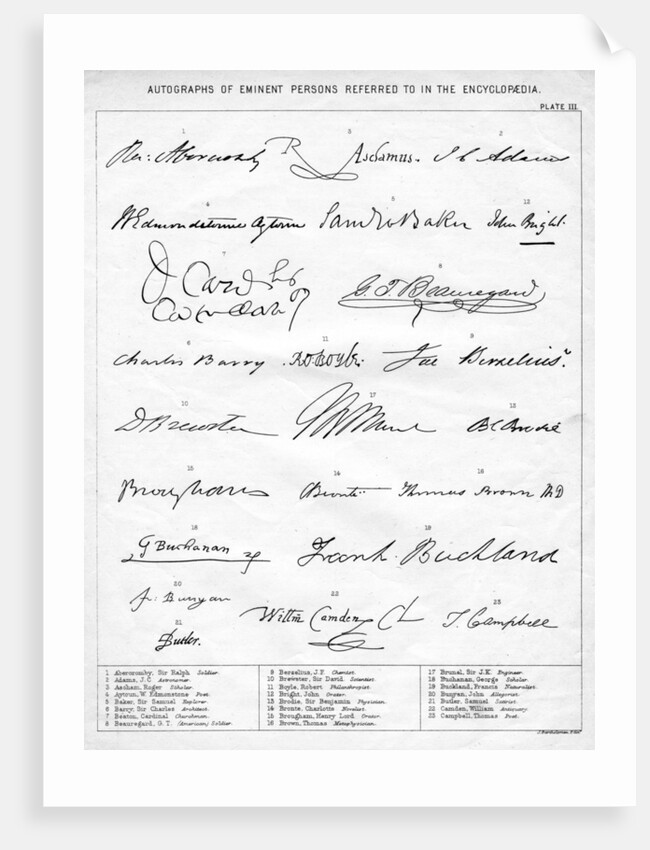 AUTOGRAPHS OF EMINENT PERSONS REFERRED TO IN THE ENCYCLOPÆDIA.
PLATE III.
1 3 2
Ra: Abercromby R Aschamus. J C Adams
4 5 12
W Edmondstoune Aytoun Saml W Baker John Bright.
7 8
J Card G. T. Beauregard
6 11 9
Charles Barry Ro: Boyle. Jac Berzelius.
10 17 13
D Brewster B C Brodie
15 14 16
Brougham CBrontë Thomas Brown MD
18 19
G Buchanan Frank Buckland
20 22 23
Jo: Bunyan Willm Camden Cl T. Campbell
21
Butler.
1 Abercromby, Sir Ralph Soldier.
2 Adams, J.C. Astronomer.
3 Ascham, Roger Scholar.
4 Aytoun, W. Edmonstone Poet.
5 Baker, Sir Samuel Explorer.
6 Barry, Sir Charles Architect.
7 Beaton, Cardinal Churchman.
8 Beauregard, G.T. (American) Soldier.
9 Berzelius, J.F. Chemist.
10 Brewster, Sir David. Scientist.
11 Boyle, Robert Philanthropist.
12 Bright, John Orator.
13 Brodie, Sir Benjamin Physician.
14 Bronte, Charlotte Novelist.
15 Brougham, Henry Lord Orator.
16 Brown, Thomas Metaphysician.
17 Brunel, Sir J.K. Engineer.
18 Buchanan, George Scholar.
19 Buckland, Francis Naturalist.
20 Bunyan, John Allegorist.
21 Butler, Samuel Satirist.
22 Camden, William Antiquary.
23 Campbell, Thomas Poet.
J. Bartholomew, Edin.